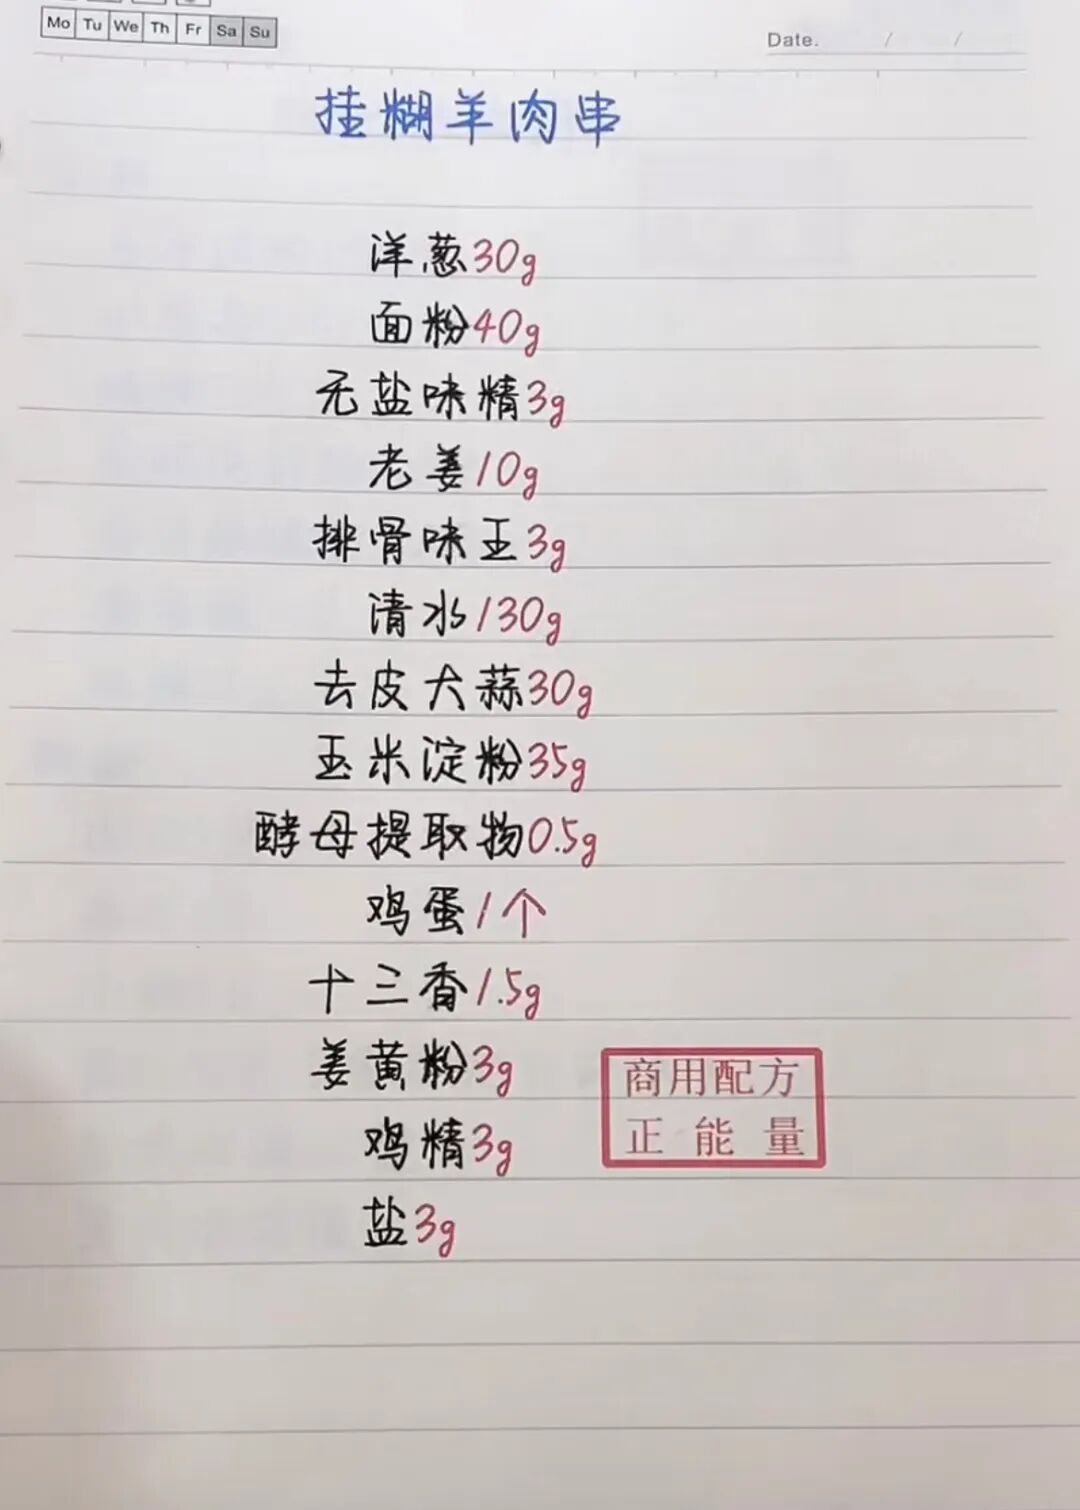 Mo Tu We Th Fr Sa Su
Date. / /
挂糊羊肉串
洋葱30g
面粉40g
无盐味精3g
老姜10g
排骨味王3g
清水130g
去皮大蒜30g
玉米淀粉35g
酵母提取物0.5g
鸡蛋1个
十三香1.5g
姜黄粉3g
鸡精3g
盐3g
商用配方
正能量